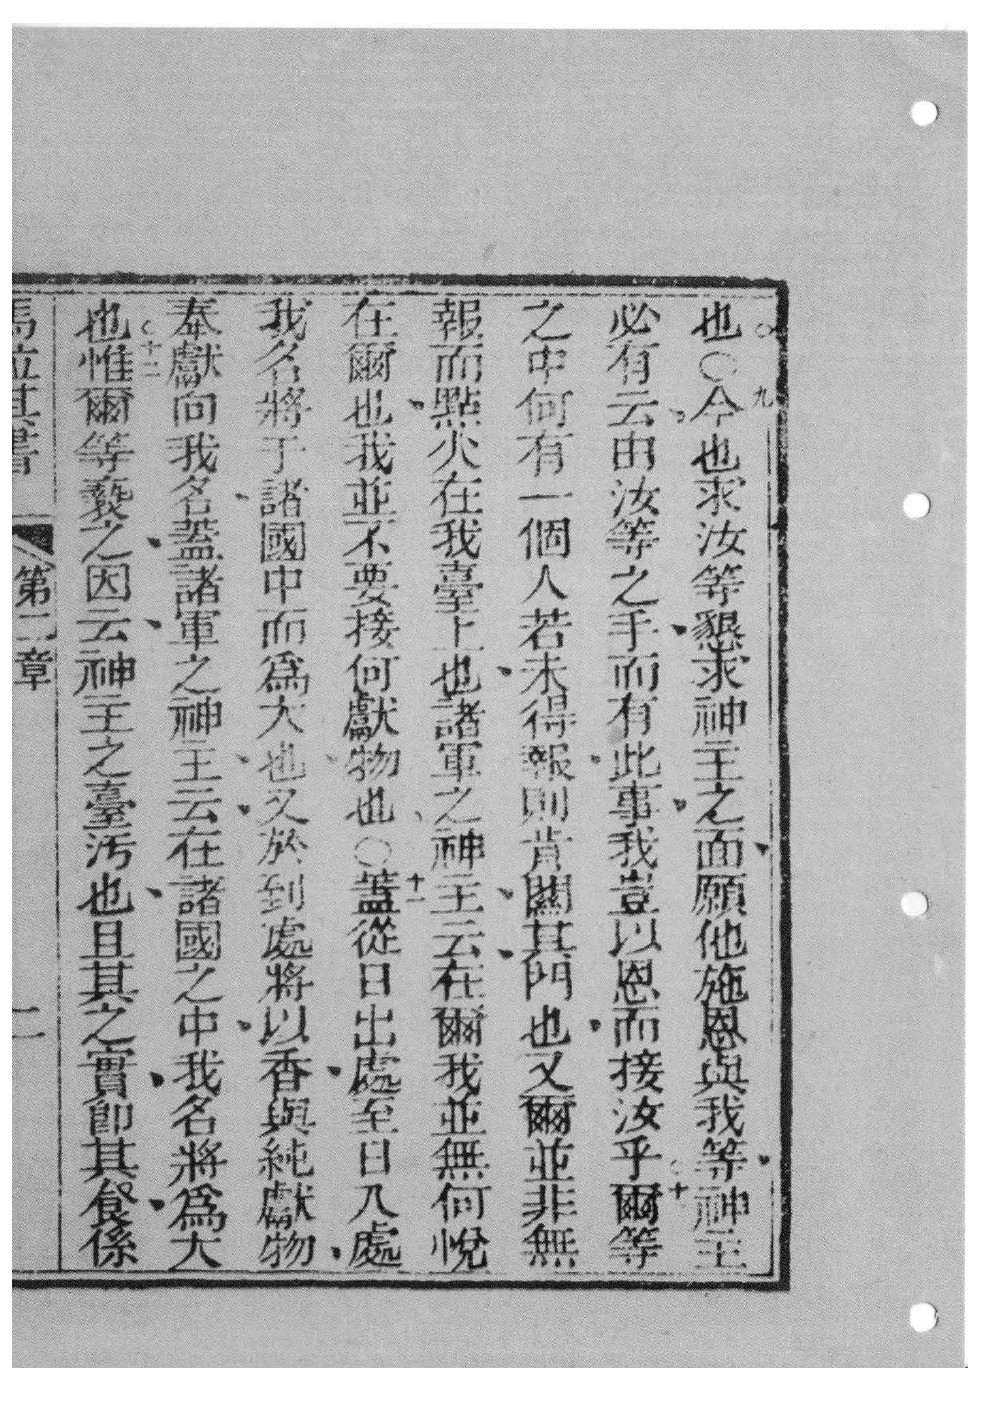 也〇九今也求汝等懇求神主之面願他施恩與我等神主
必有云由汝等之手而有此事我豈以恩而接汝乎〇十爾等
之中何有一個人若未得報則肯關其門也又爾並非無
報而點火在我臺上也諸軍之神主云在爾我並無何悅
在爾也我並不要接何獻物也〇十一蓋從日出處至日入處
我名將于諸國中而為大也又於到處將以香與純獻物
奉獻向我名蓋諸軍之神主云在諸國之中我名將為大
也〇十二惟爾等褻之因云神主之臺汚也且其之實即其餐係
馬拉其書 第二章 二